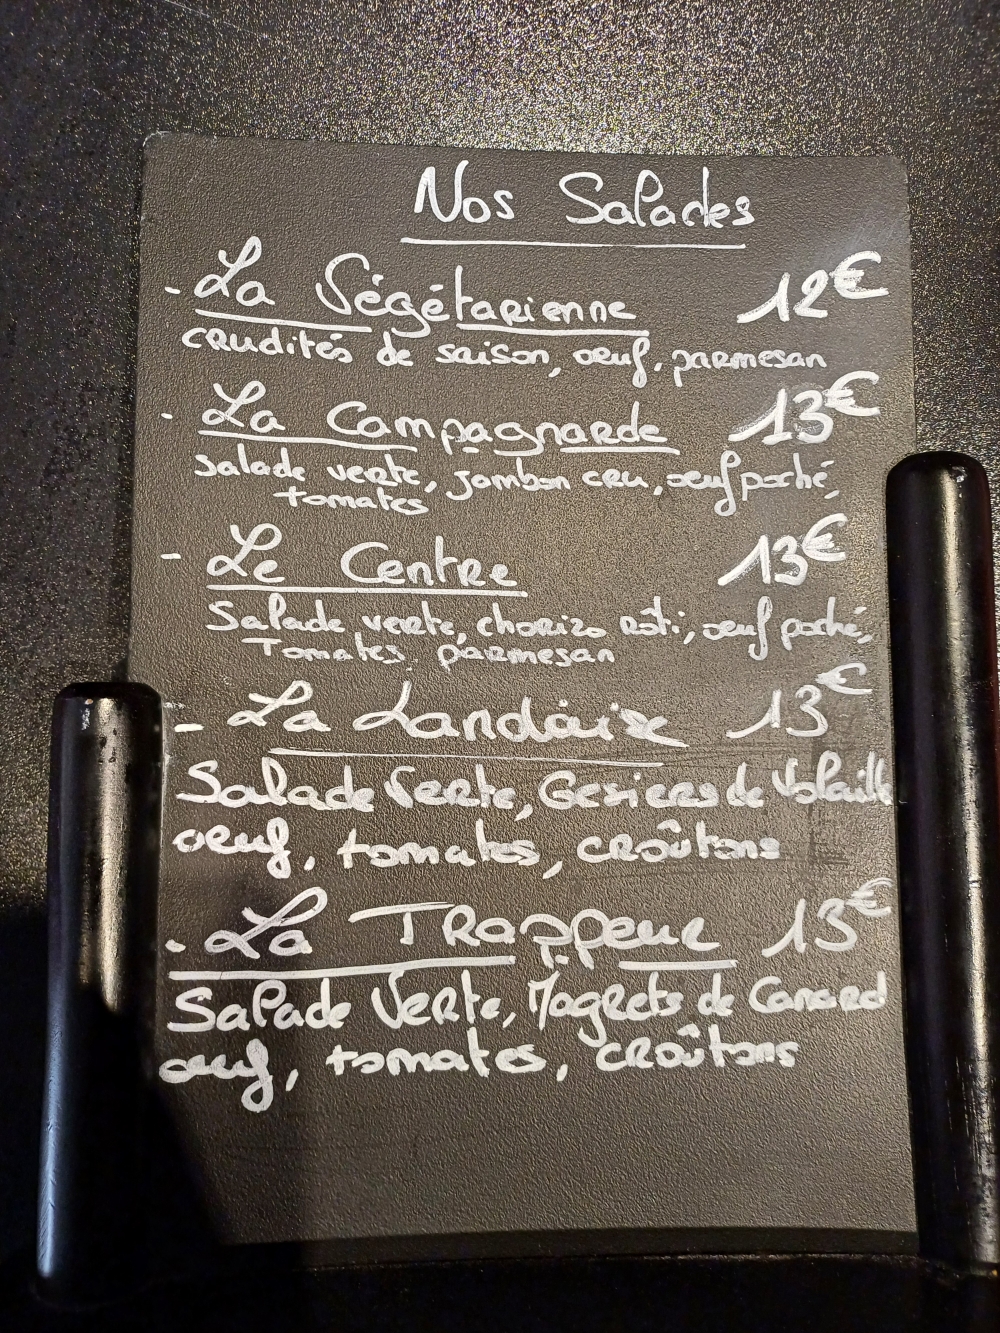 Nos Salades
- La Végétarienne 12€
crudités de saison, oeuf, parmesan
- La Campagnarde 13€
salade verte, jambon cru, oeuf poché,
tomates
- Le Centre 13€
Salade verte, chorizo rôti, oeuf poché,
Tomates, parmesan
- La Landaise 13€
Salade Verte, Gesiers de Volaille
oeuf, tomates, croûtons
- La Trappeur 13€
Salade Verte, Magrets de Canard
oeuf, tomates, croûtons